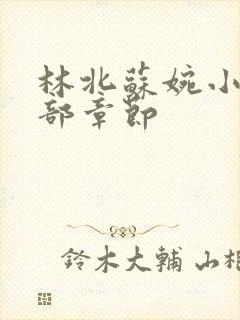 林北蘇婉小
部章節
鈴木大輔 山相